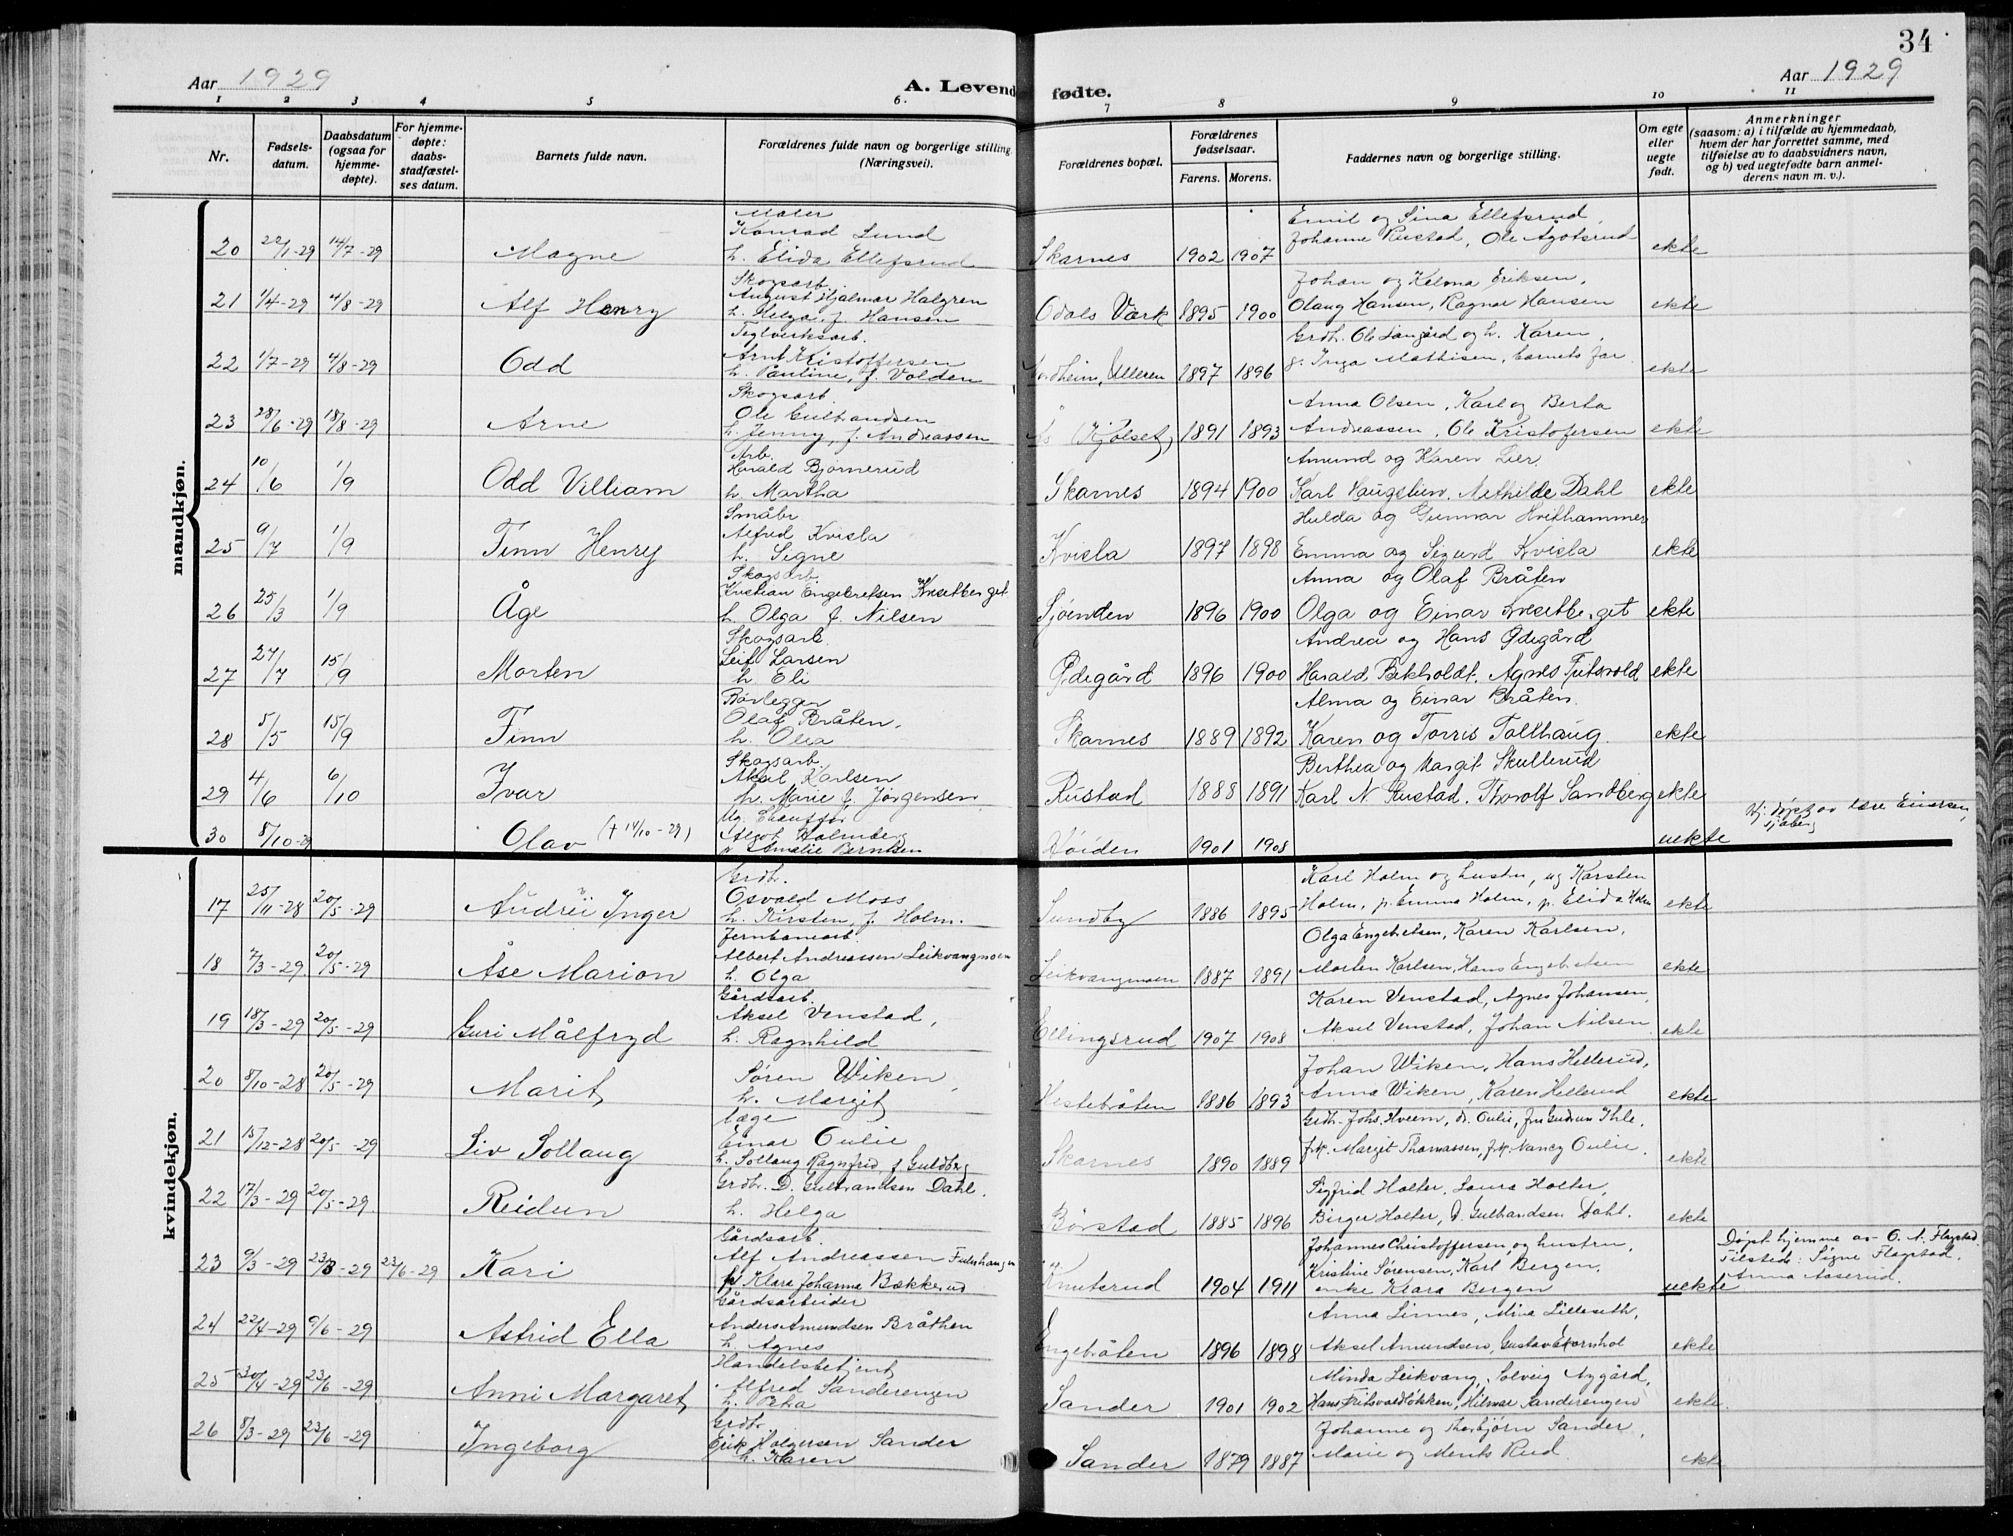 34
Aar 1929
A. Levende fødte.
Aar 1929
1 2 3 4 5 6. 7 8 9 10 11
Nr.
Fødsels-
datum.
Daabsdatum
(ogsaa for
hjemme-
døpte).
For hjemme-
døpte:
daabs-
stadfæstel-
ses datum.
Barnets fulde navn.
Forældrenes fulde navn og borgerlige stilling
(Næringsvei).
Forældrenes bopæl.
Forældrenes
fødselsaar.
Farens. Morens.
Faddernes navn og borgerlige stilling.
Om egte
eller
uegte
født.
Anmerkninger
(saasom: a) i tilfælde av hjemmedaab,
hvem der har forrettet samme, med
tilføielse av to daabsvidners navn,
og b) ved uegtefødte barn anmel-
derens navn m. v.).
mandkjøn.
Maler
Konrad Lund Emil og Sina Ellefsrud,
20 22/1-29 14/7-29 Magne h. Elida Ellefsrud Skarnes 1902 1907 Johanne Rustad, Ole Agotsrud ekte
Skogsarb.
August Hjalmar Halgren Johan og Eriksen,
21 1/4-29 4/8-29 Alf Henry h. Helga f. Hansen Odals Værk 1895 1900 Olaug Hansen, Ragnar Hansen ekte
Teglverksarb.
Arnt Kristoffersen Grdb. Ole Langård og h. Karen,
22 1/7-29 4/8-29 Odd h. Pauline, f. Volden Ulleren 1897 1896 Inga Mathisen, barnets far ekte
Skogsarb.
Ole Gulbrandsen Anna Olsen, Karl og Berta
23 28/6-29 18/8-29 Arne h. Jenny, f. Andreassen 1891 1893 Andreassen, Ole Kristofersen ekte
Arb.
Harald Bjørnerud Amund og Karen Lier.
24 10/6 1/9 Odd Villiam h. Martha Skarnes 1894 1900 Karl Haugstun, Methilde Dahl ekte
Småbr
Alfred Kvisla Hulda og Gunnar Hvithammer
25 9/7 1/9 Finn Henry h. Signe Kvisla 1897 1898 Emma og Sigurd Kvisla ekte
Skogsarb.
Kristian Engebretsen Knesetberget Anna og Olaf Bråten
26 25/3 1/9 Åge h. Olga f. Nilsen Sjøenden 1896 1900 Olga og Einar Knesetberget ekte
Skogsarb.
Leif Larsen Andrea og Hans Ødegård
27 27/7 15/9 Morten h. Eli Ødegård 1896 1900 Harald Bekholdt, Agnes ekte
Rørlegger
Olaf Bråten, Alma og Einar Bråten.
28 5/5 15/9 Finn h. Olea Skarnes 1889 1892 Karen og Torris Tolthaug ekte
Skogsarb.
Aksel Karlsen Berthea og Margit Skullerud
29 4/6 6/10 Ivar h. Marie f. Jørgensen Rustad 1888 1891 Karl N. Rustad, Thorolf Sandberg ekte
Ug. Chauffør
Holmberg
30 8/10-29 Olav (+ 14/10-29) Amalie Berntsen 1901 1908 uekte Hj. døpt av
kvindekjøn.
Grdb.
Osvald Moss Karl Holm og hustru, ug Karsten
17 25/11-28 20/5-29 Audni Inger h. Kirsten, f. Holm. Sundby 1886 1895 Holm, p. Emma Holm, p. Elida Holm ekte
Jernbanearb.
Albert Andreassen Leikvangmoen Olga Engebretsen, Karen Karlsen,
18 7/3-29 20/5-29 Åse Marion h. Olga Leikvangmoen 1887 1891 Morten Karlsen, Hans Engebretsen ekte
Gårdsarb.
Aksel Venstad, Karen Venstad, Agnes Johansen,
19 18/3-29 20/5-29 Guri Målfryd h. Ragnhild Ellingsrud 1907 1908 Aksel Venstad, Johan Nilsen ekte
Søren Wiken, Johan Wiken, Hans Hellerud,
20 8/10-28 20/5-29 Marit h. Margit Hestebråten 1886 1893 Anna Wiken, Karen Hellerud ekte
læge
Einar Oulie Grdb. Johs. Hveem, d. Oulie, fru Gudrun Ihle,
21 15/12-28 20/5-29 Liv Sollaug h. Sollaug Ragnfrid, f. Guldberg Skarnes 1890 1889 frk. Margit Thomassen, frk. Nancy Oulie. ekte
Grdbr. D. Gulbrandsen Dahl. Sigfrid Holter, Laura Holter,
22 17/3-29 20/5-29 Reidun h. Helga Børstad 1885 1896 Birger Holter, D. Gulbrandsen Dahl. ekte
Gårdsarb.
Alf Andreassen Fuluhaugen Johannes Christoffersen og hustru, Døpt hjemme av O. A. Flagstad.
23 9/3-29 23/3-29 23/6-29 Kari p Klara Johanne Bækkerud Knutsrud 1904 1911 Kristine Sørensen, Karl Bergen, enke Klara Bergen uekte Tilstede: Signe Flagstad.
Anna Aaserud.
Gårdsarbeider
Anders Amundsen Bråthen Anna Linnes, Mina Lilleseth,
24 22/4-29 9/6-29 Astrid Ella h. Agnes Engebråten 1896 1898 Aksel Amundsen, Gustav Ekornhol ekte
Handelsbetjent
Alfred Sanderengen Minda Leikvang, Solveig Nygård,
25 30/4-29 23/6-29 Anni Margaret h. Sander 1901 1902 Hans Fritsvoldløkken, Hilmar Sanderengen ekte.
Grdbr.
Erik Holgersen Sander Johanne og Thorbjørn Sander,
26 8/3-29 23/6-29 Ingeborg h. Karen Sander 1879 1887 Marie og Rud. ekte